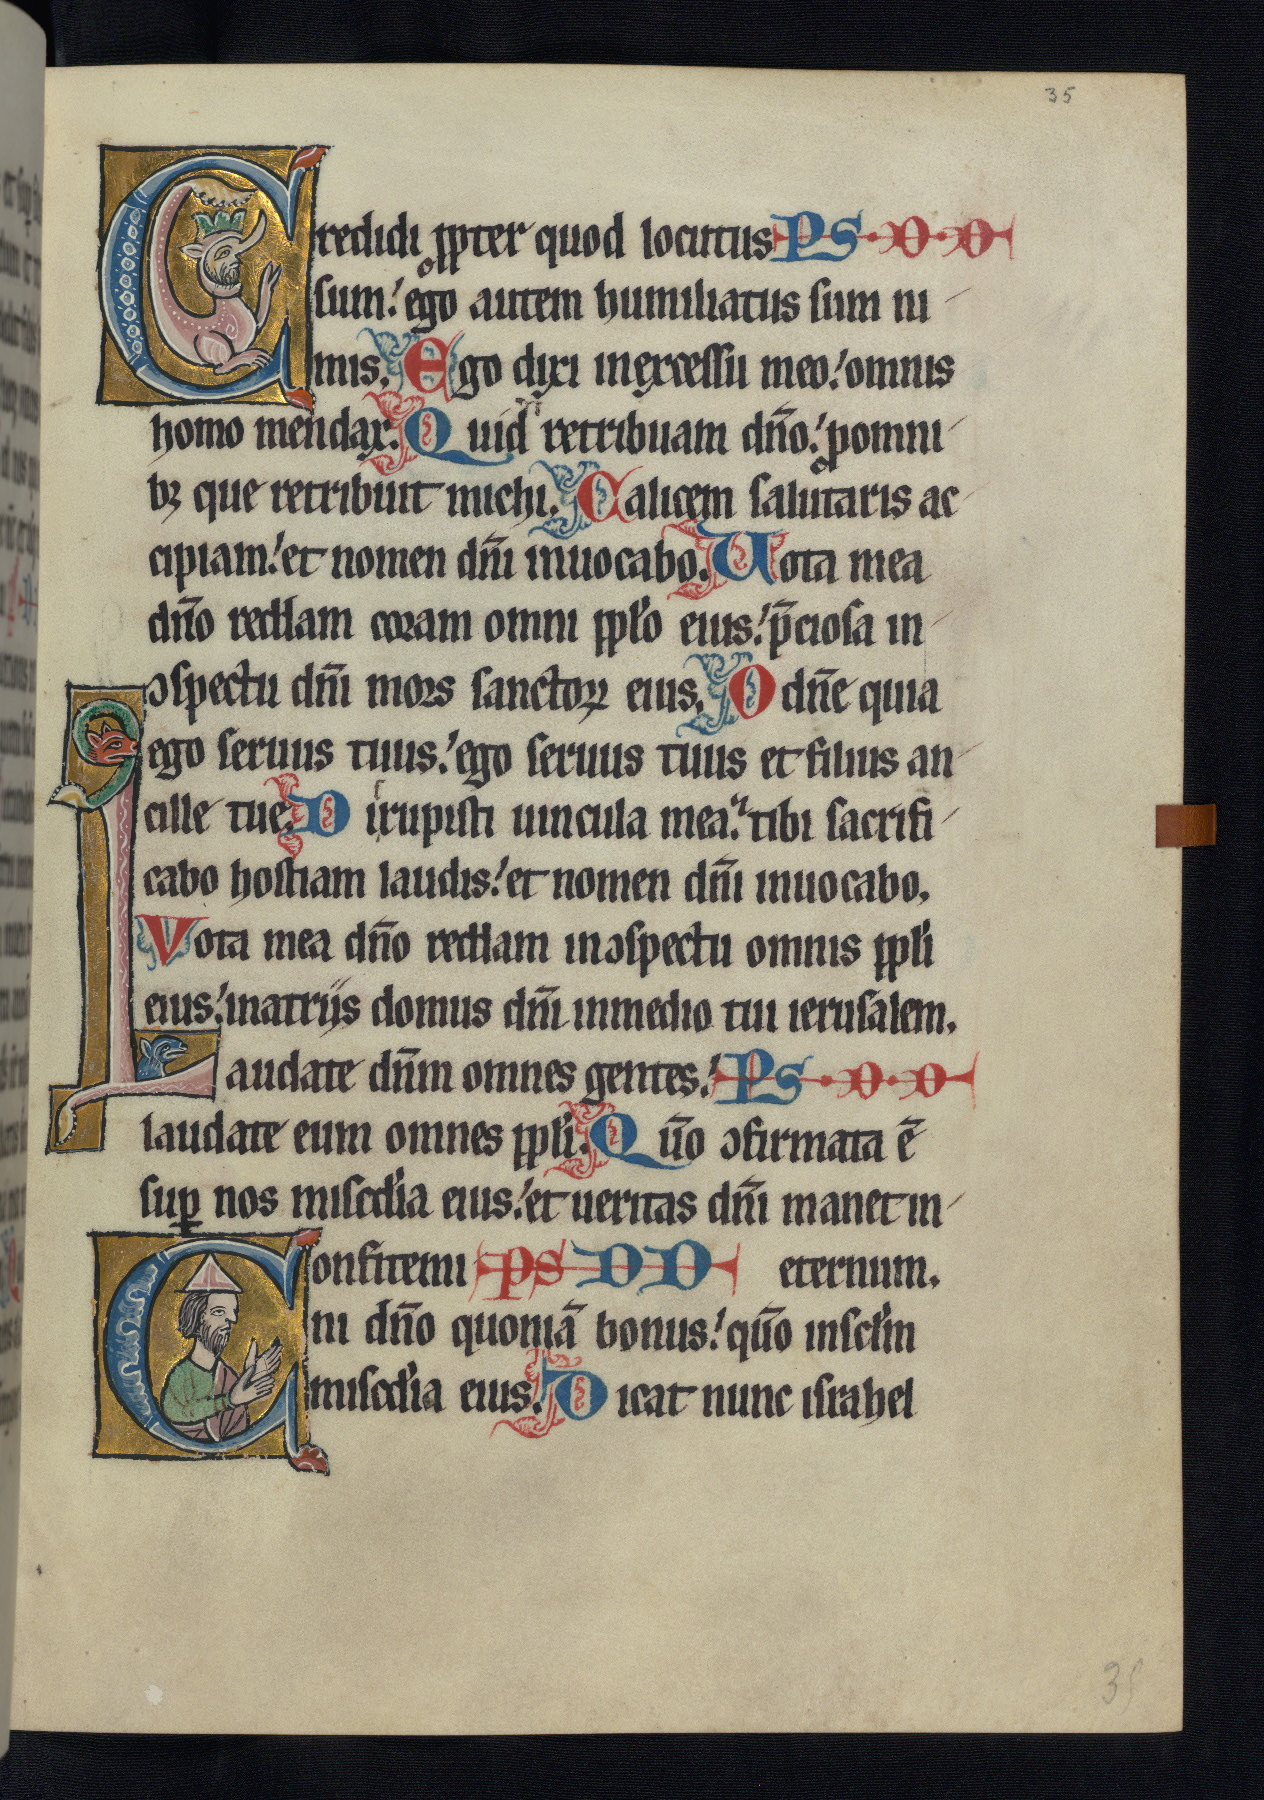 35
Credidi ꝓpter quod locutus PS D D
sum: ego autem humiliatus sum ni
mis. Ego dixi in excessu meo: omnis
homo mendax. Quid retribuam dño: ꝓ omni
bꝫ que retribuit michi. Calicem salutaris ac
cipiam: et nomen dñi inuocabo. Uota mea
dño reddam coram omni ppl'o eius: p̄ciosa in
ꝯspectu dñi mors sanctoꝝ eius. O dñe quia
ego seruus tuus: ego seruus tuus et filius an
cille tue. Dirupisti uincula mea: tibi sacrifi
cabo hostiam laudis: et nomen dñi inuocabo.
Vota mea dño reddam in ꝯspectu omnis ppl'i
eius: in atrijs domus dñi in medio tui ierusalem.
Laudate dñm omnes gentes: PS D D
laudate eum omnes ppl'i. Qũo ꝯfirmata ē
suꝑ nos mis'cdia eius: et ueritas dñi manet in
Confitemi PS D D eternum.
ni dño quoniā bonus: qũo in sc'lm
mis'cdia eius. Dicat nunc israhel
35